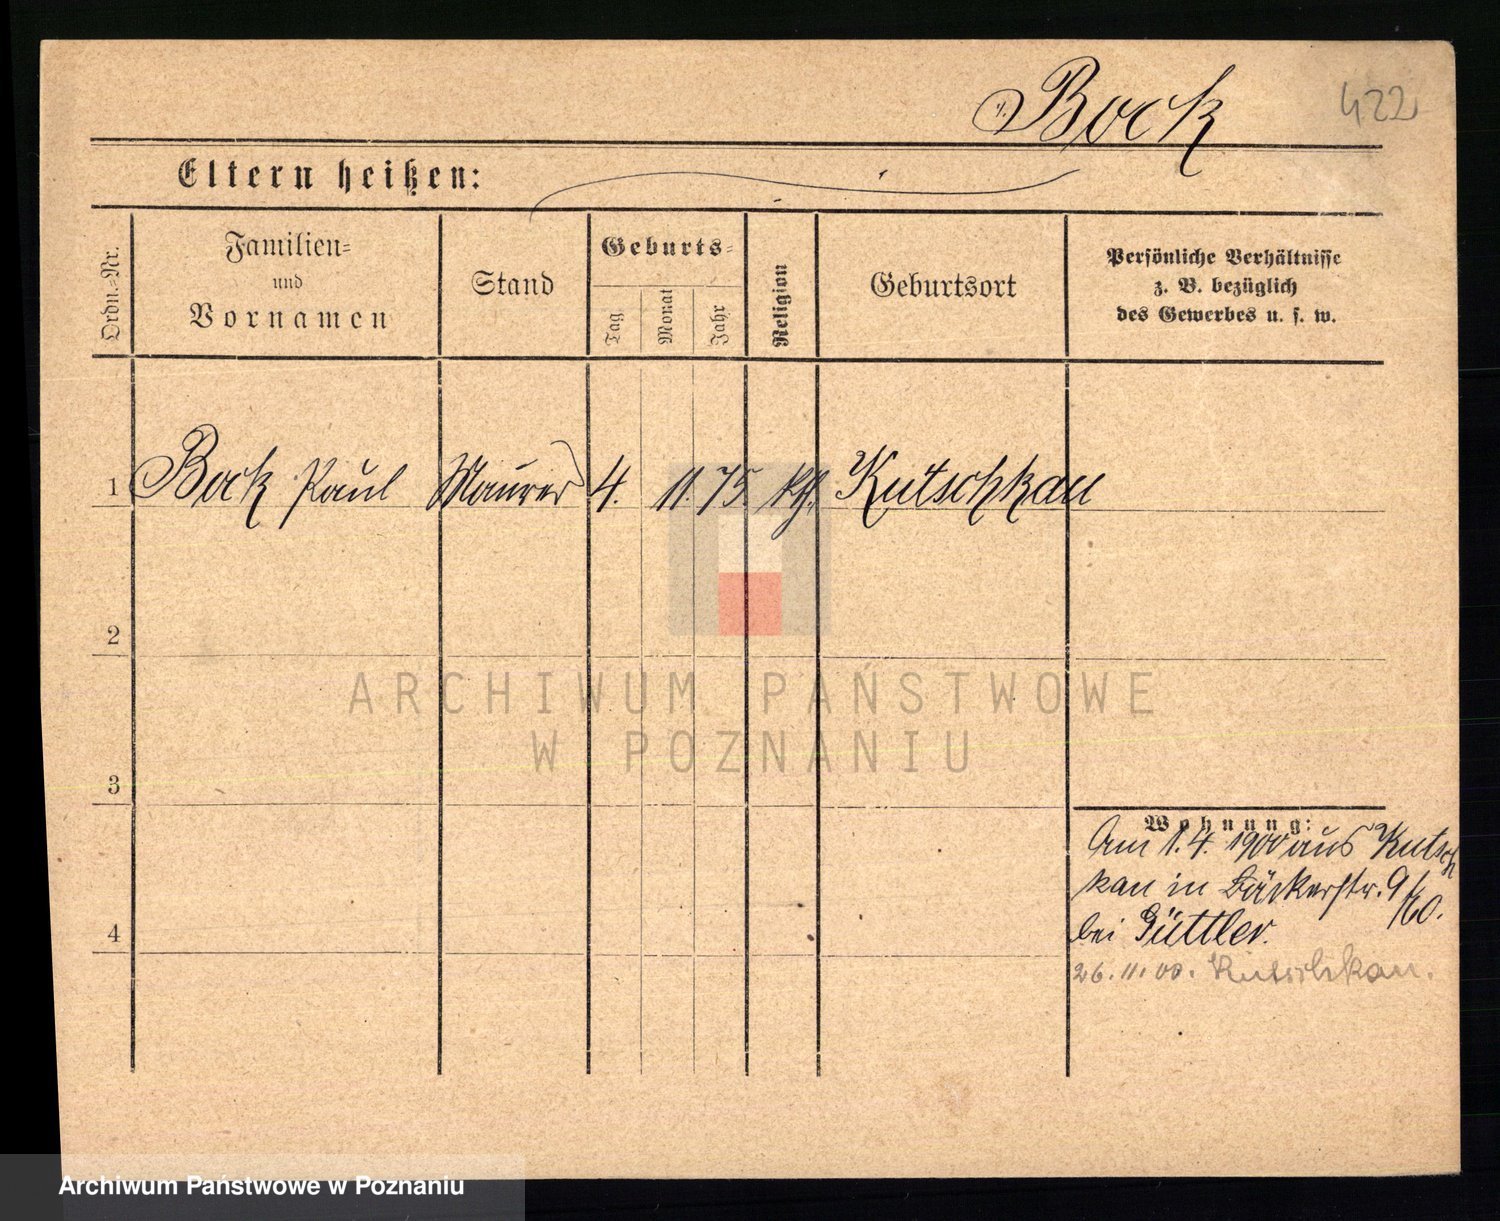 Bock
422
Eltern heißen:
Ordn.-Nr.
Familien-
und
Vornamen
Stand
Geburts-
Tag
Monat
Jahr
Religion
Geburtsort
Persönliche Verhältnisse
z. B. bezüglich
des Gewerbes u. s. w.
1 Bock Paul Maurer 4. 11. 75. kth. Kutschkau
2
3
4
Wohnung:
Am 1.4. 1900 aus Kutsch
kau in Bäckerstr. 9
bei Güttler.
26.11.00. Kutschkau.
ARCHIWUM PAŃSTWOWE
W POZNANIU
Archiwum Państwowe w Poznaniu